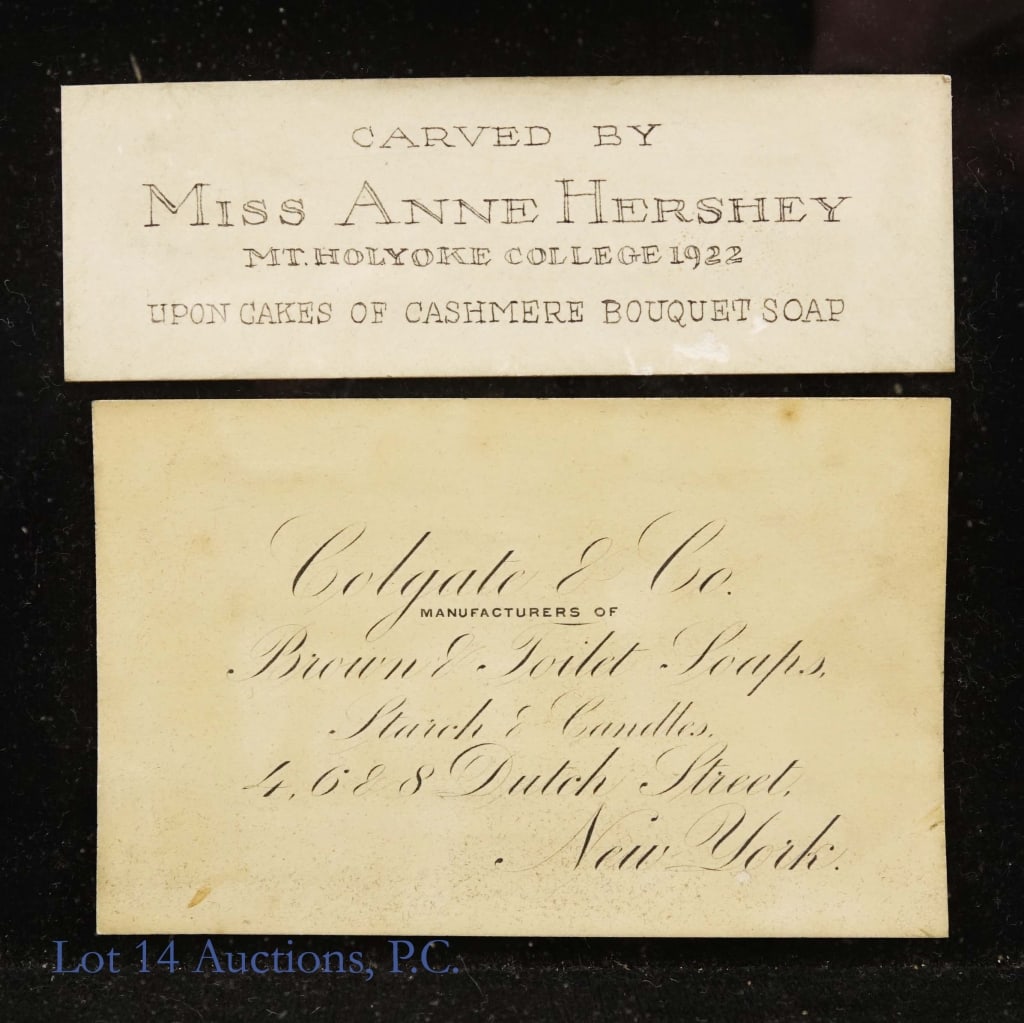 CARVED BY
MISS ANNE HERSHEY
MT. HOLYOKE COLLEGE 1922
UPON CAKES OF CASHMERE BOUQUET SOAP
Colgate & Co.
MANUFACTURERS OF
Brown & Toilet Soaps,
Starch & Candles.
4, 6 & 8 Dutch Street,
New York.
Lot 14 Auctions, P.C.